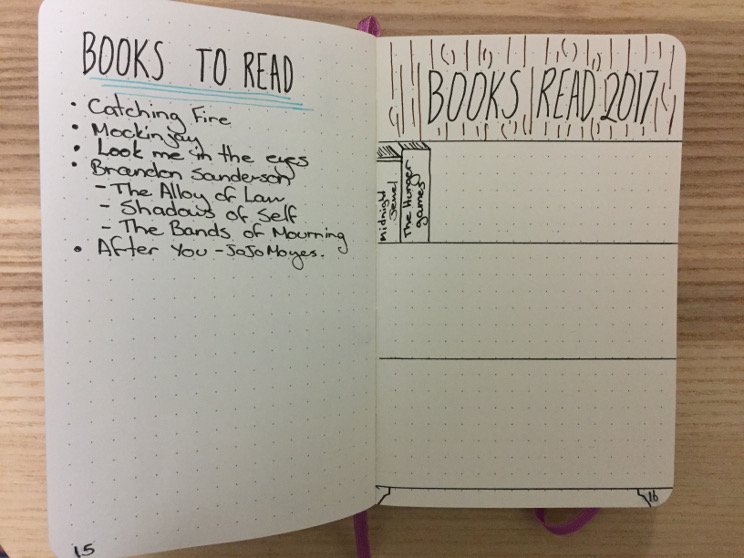 BOOKS TO READ
• Catching Fire
• Mockinjay
• Look me in the eyes
• Brandon Sanderson
– The Alloy of Law
– Shadows of Self
– The Bands of Mourning
• After You – JoJo Moyes.
15
BOOKS READ 2017
Midnight
Jewel
The Hunger
games
16